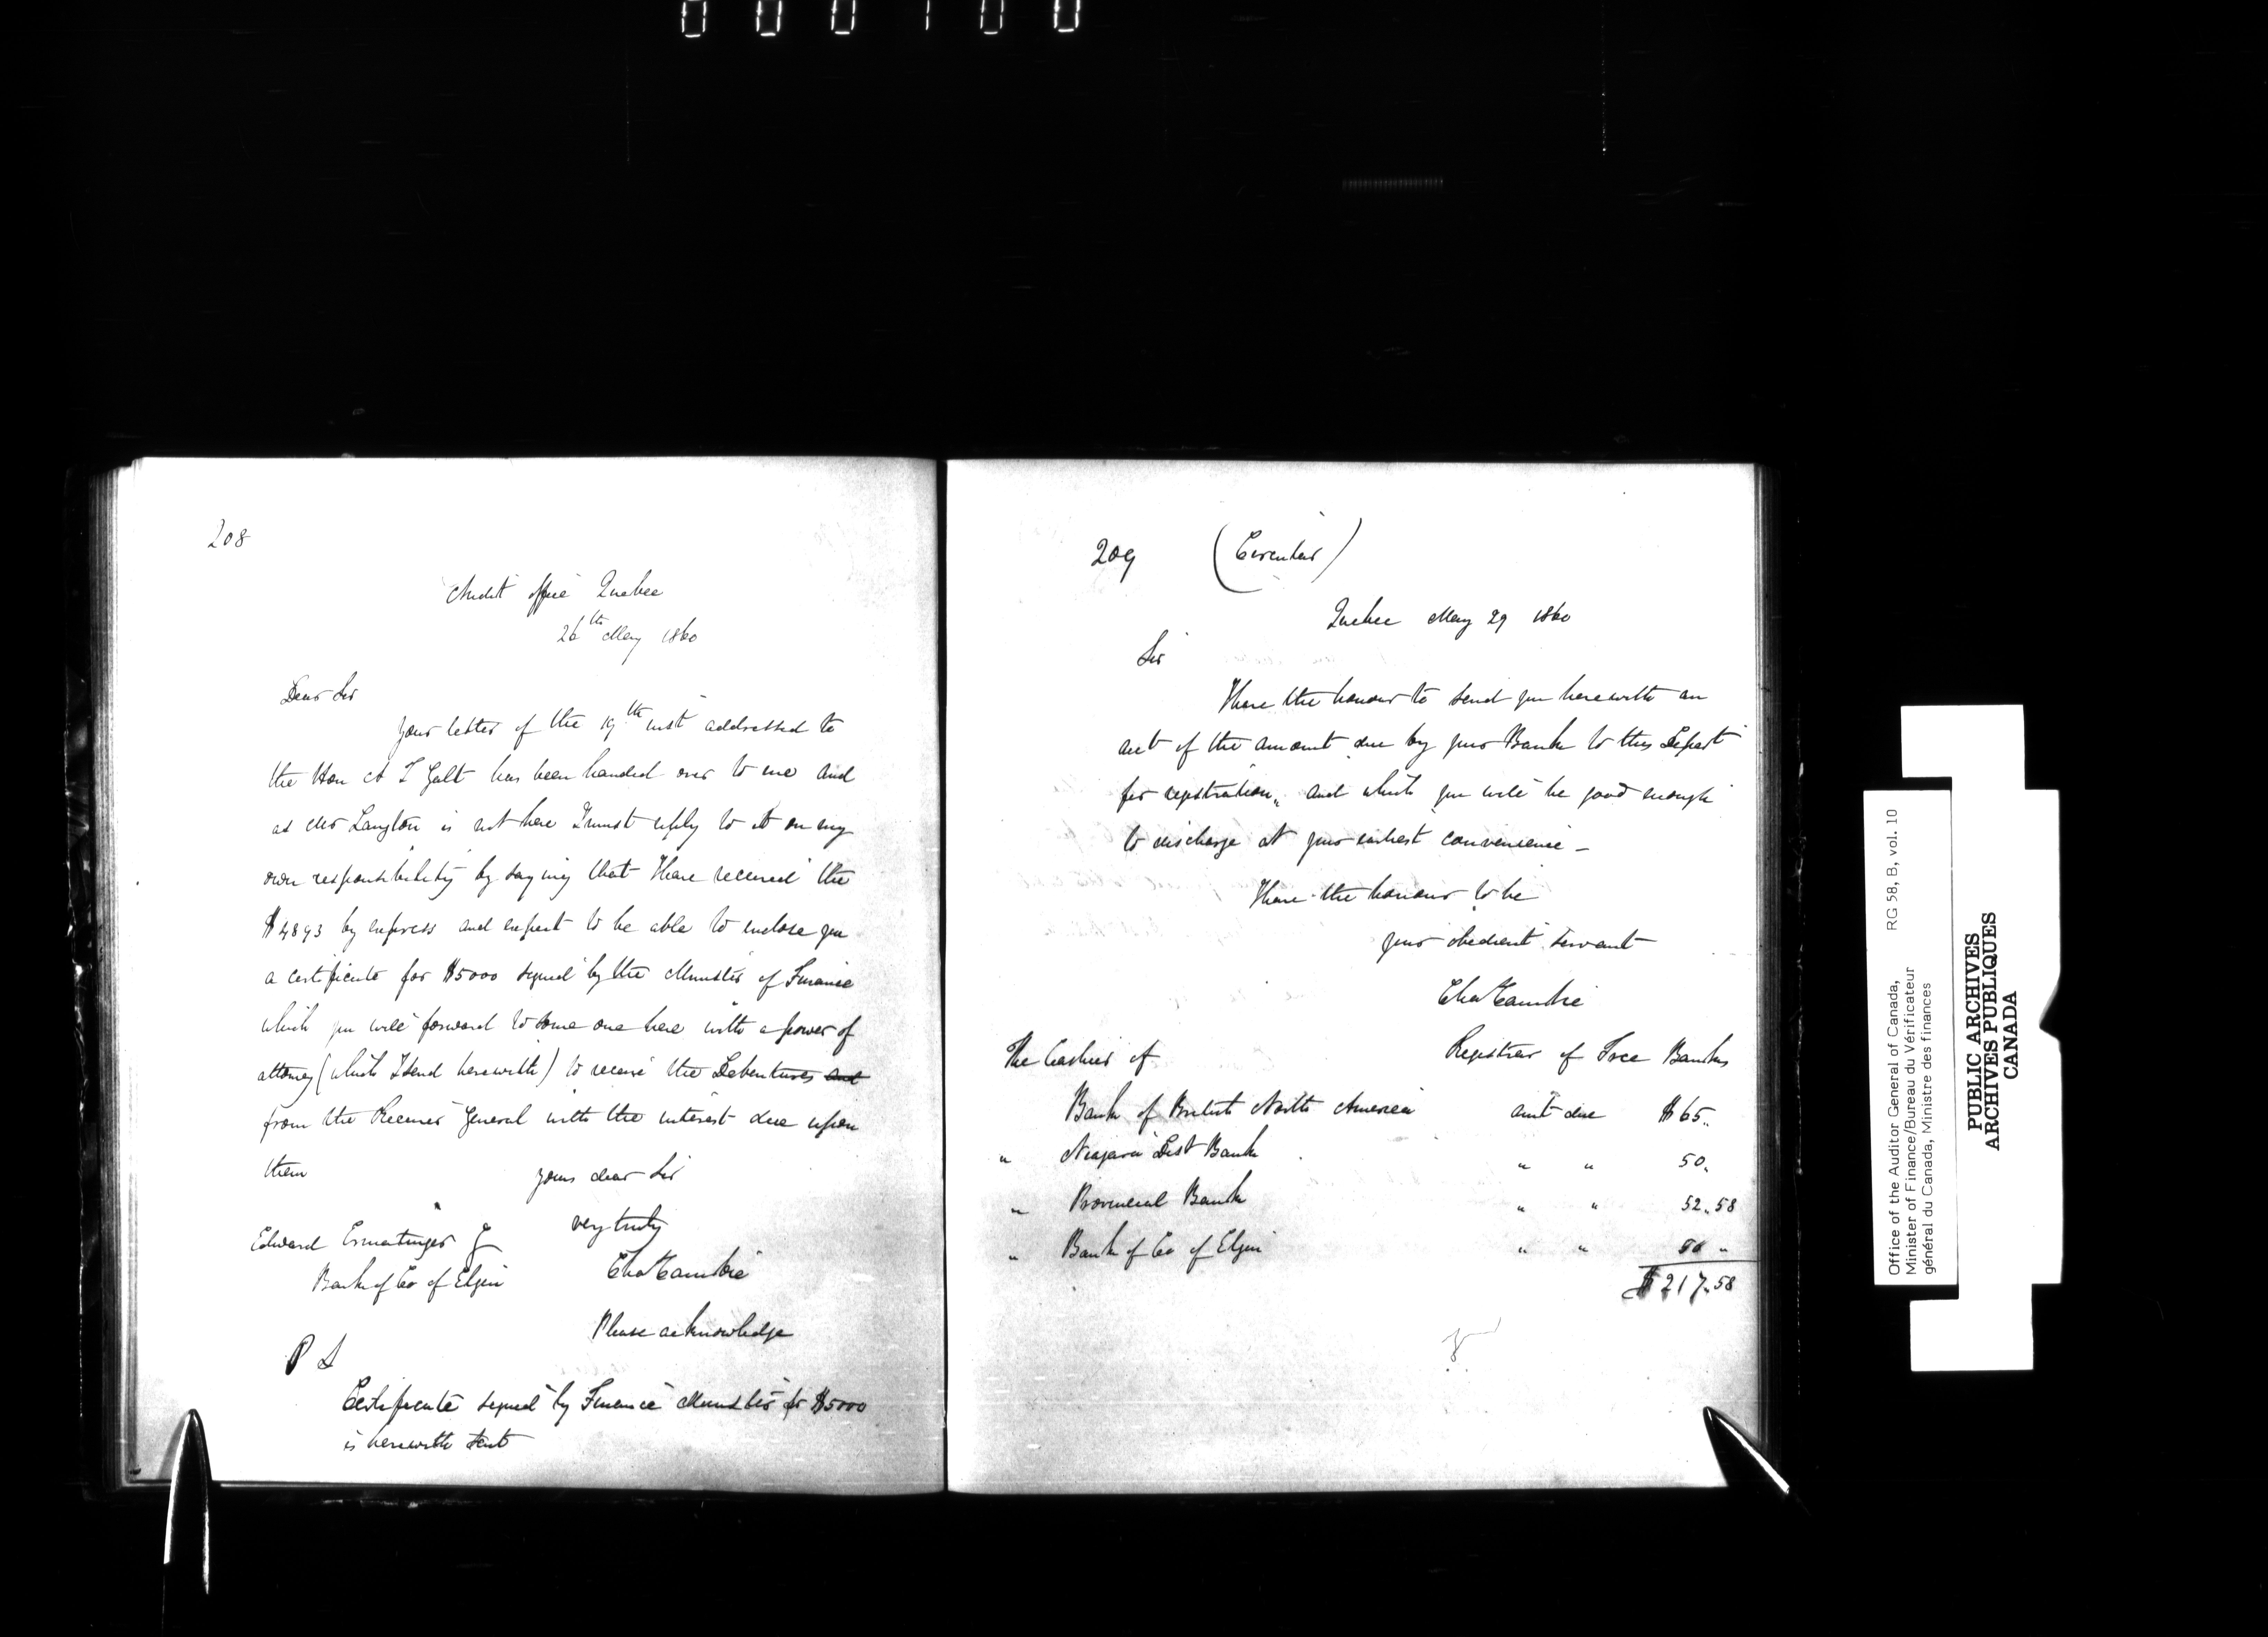 000100
208
Audit office Quebec
26th May 1860
Dear Sir
Your letter of the 19th inst addressed to
the Hon A T Galt has been handed over to me and
as Mr Langton is not here I must reply to it on my
own responsibility by saying that I have received the
$4893 by express and expect to be able to inclose you
a certificate for $5000 signed by the Minister of Finance
which you will forward to some one here with a power of
attorney (which I send herewith) to receive the Debentures and
from the Receiver General with the interest due upon
them
yours dear Sir
very truly
Edward Ermatinger
Chas Cambie
Bank of Co of Elgin
Please acknowledge
P S
Certificate signed by Finance Minister for $5000
is herewith sent
209 (Circular)
Quebec May 29 1860
Sir
I have the honour to send you herewith an
acct of the amount due by your Bank to this Depart
for registration, and which you will be good enough
to discharge at your earliest convenience -
I have the honour to be
your obedient servant
Chas Cambie
Registrar of Free Banks
The Cashier of
Bank of British North America amt due $65..
" Niagara Dist Bank " " 50.
" Provincial Bank " " 52.58
" Bank of Co of Elgin " " 50 "
$217.58
Office of the Auditor General of Canada, RG 58, B, vol. 10
Minister of Finance/Bureau du Vérificateur
général du Canada, Ministre des finances
PUBLIC ARCHIVES
ARCHIVES PUBLIQUES
CANADA